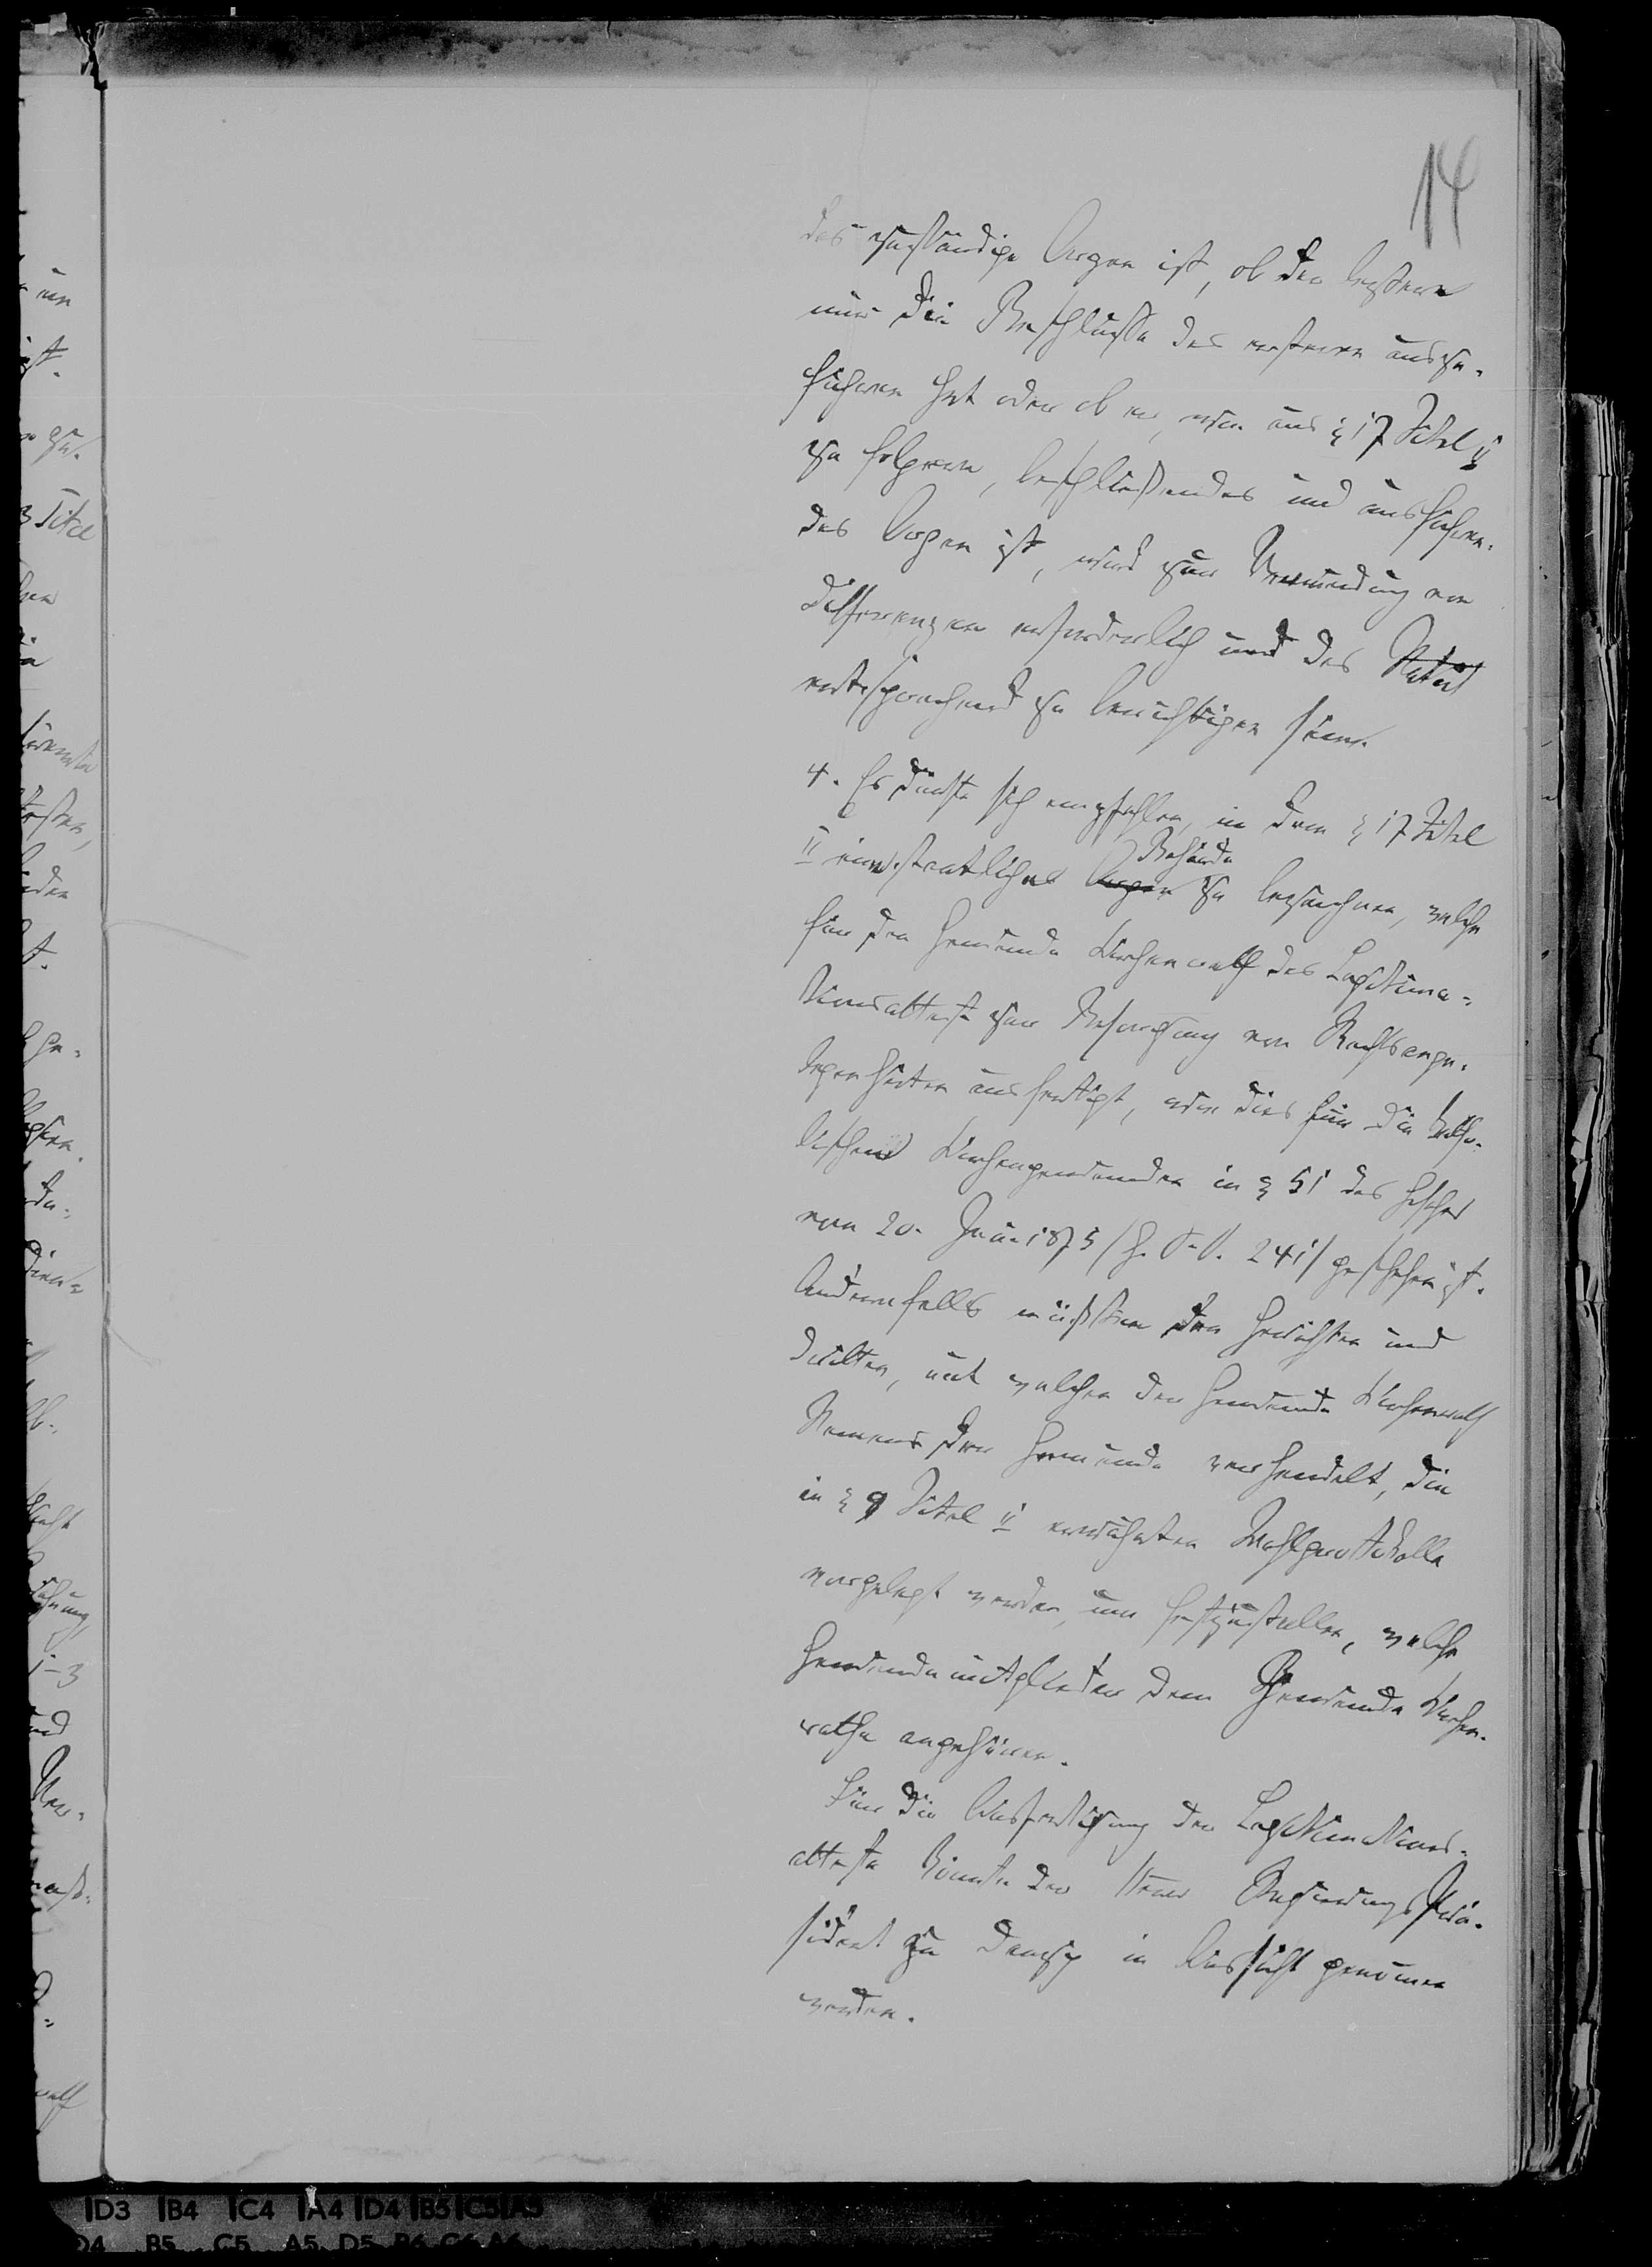 14
das zuständige Organ ist, ob der letztere
nur die Beschlüsse des ersteren auszu-
führen hat oder ob er, wie aus § 17 Titel II
zu folgern, beschließendes und ausführen-
des Organ ist, wird zur Vermeidung von
Differenzen erforderlich und das Statut
entsprechend zu berichtigen sein.
4. Es dürfte sich empfehlen, in dem § 17 Titel
Behörde
II eine staatliche Organ zu bezeichnen, welche
für den Gemeinde Kirchenrath das Legitima-
tionsattest zur Besorgung von Rechtsange-
legenheiten ausfertigt, wie dies für die katho-
lischen Kirchengemeinden in § 51 des Gesetzes
vom 20. Juni 1875 /G. S. S. 241/ geschehen ist.
Andernfalls müßten den Gerichten und
Dritten, mit welchen der Gemeinde Kirchenrath
Namens der Gemeinde verhandelt, die
in § 9 Titel II erwähnten Wahlprotokolle
vorgelegt werden, um festzustellen, welche
Gemeindemitglieder dem Gemeinde Kirchen-
rathe angehören.
Für die Ausfertigung der Legitimations-
atteste könnte der Herr Regierungs Präsi-
sident zu Danzig in Aussicht genommen
werden.
D3 B4 C4 A4 D4 B5 C5 A5
D4 B5 C5 A5 D5 B6 C6 A6